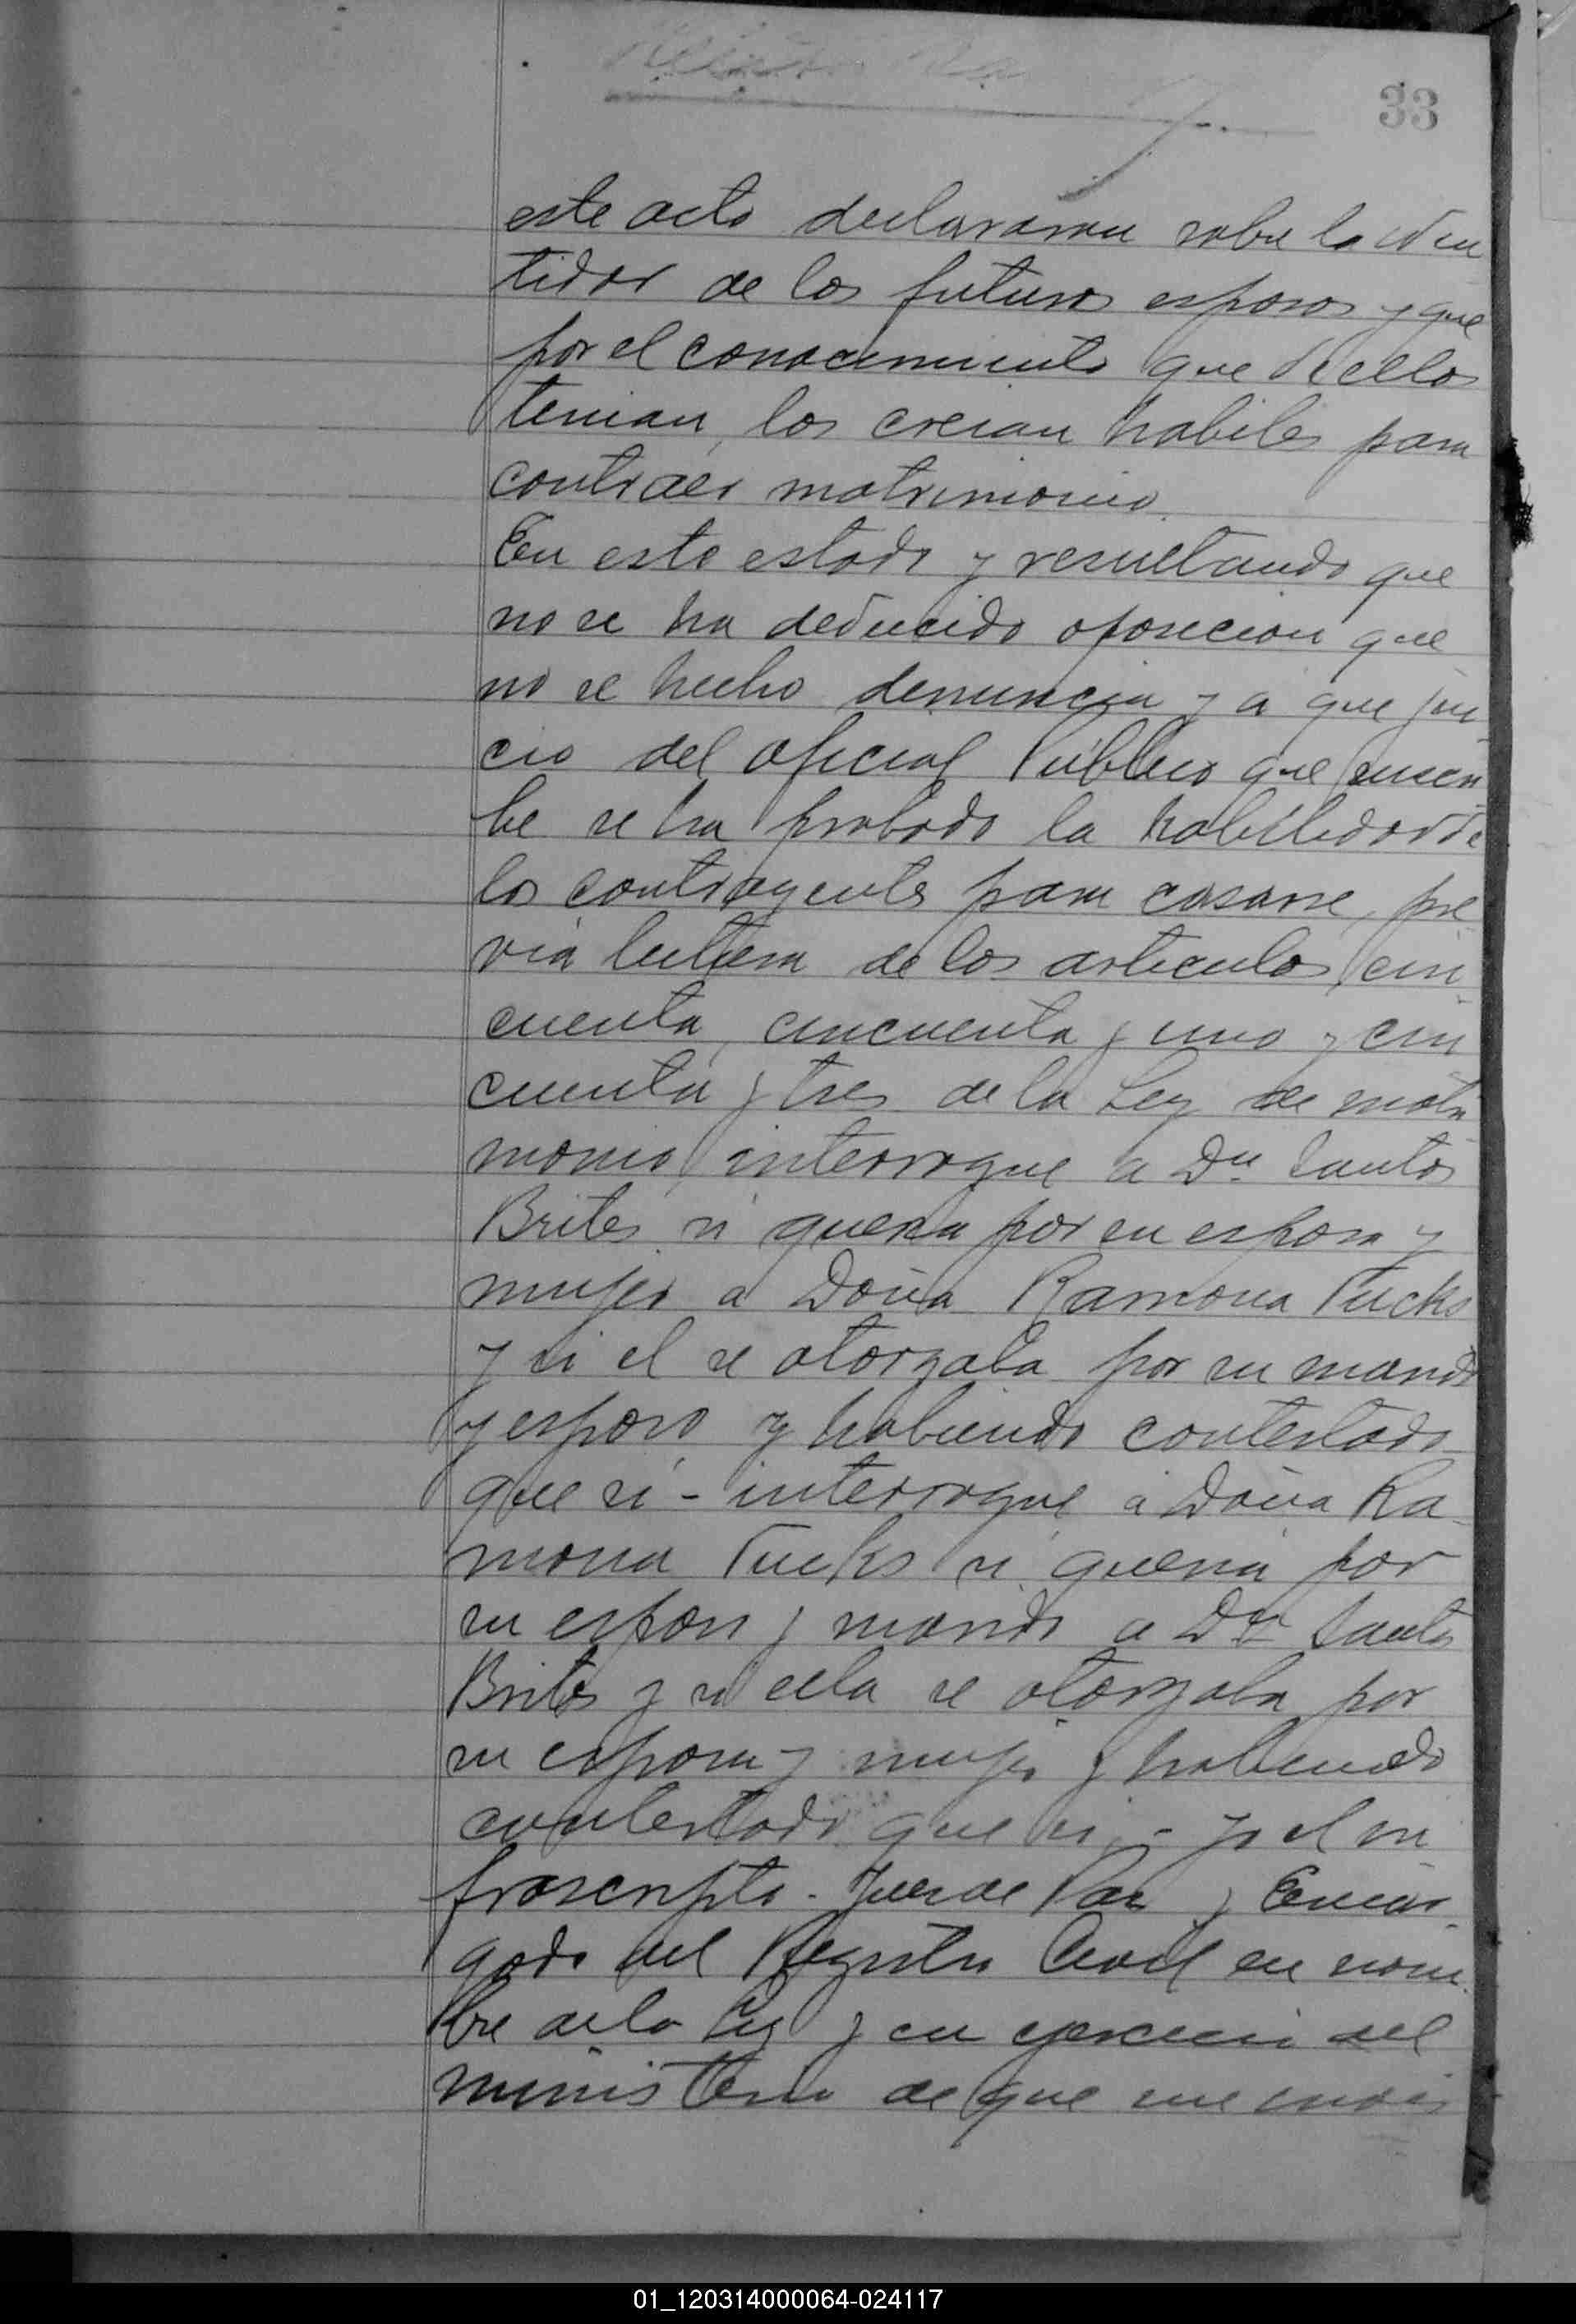 33
este acto declararon sobre la iden
tidad de los futuros esposos y que
por el conocimiento que de ellos
tenian, los creian habiles para
contraer matrimonio.
En este estado y resultando que
no se ha deducido oposicion que
no se hecho denuncia y a que jui
cio del oficial Público que suscri
be se ha probado la habilidad de
los contrayentes para casarse, pre
via lectura de los articulos cin
cuenta, cincuenta y uno y cin
cuenta y tres de la Ley de matri
monio, interrogue a Dn Santos
Brites si queria por su esposa y
mujer a Doña Ramona Fucks
y si el se otorgaba por su marido
y esposo y habiendo contestado
que si - interrogue a Doña Ra
mona Fucks si queria por
su esposo y marido a Dn Santos
Brites y si ella se otorgaba por
su esposa y mujer y habiendo
contestado que si, - yo el in
frascripto - Juez de Paz y Encar
gado del Registro Civil en nom
bre de la Ley y en ejercicio del
ministerio de que me
01_120314000064-024117